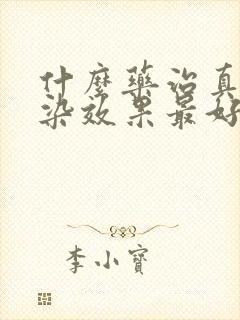 什麼藥治真
染效果最好
李小寶